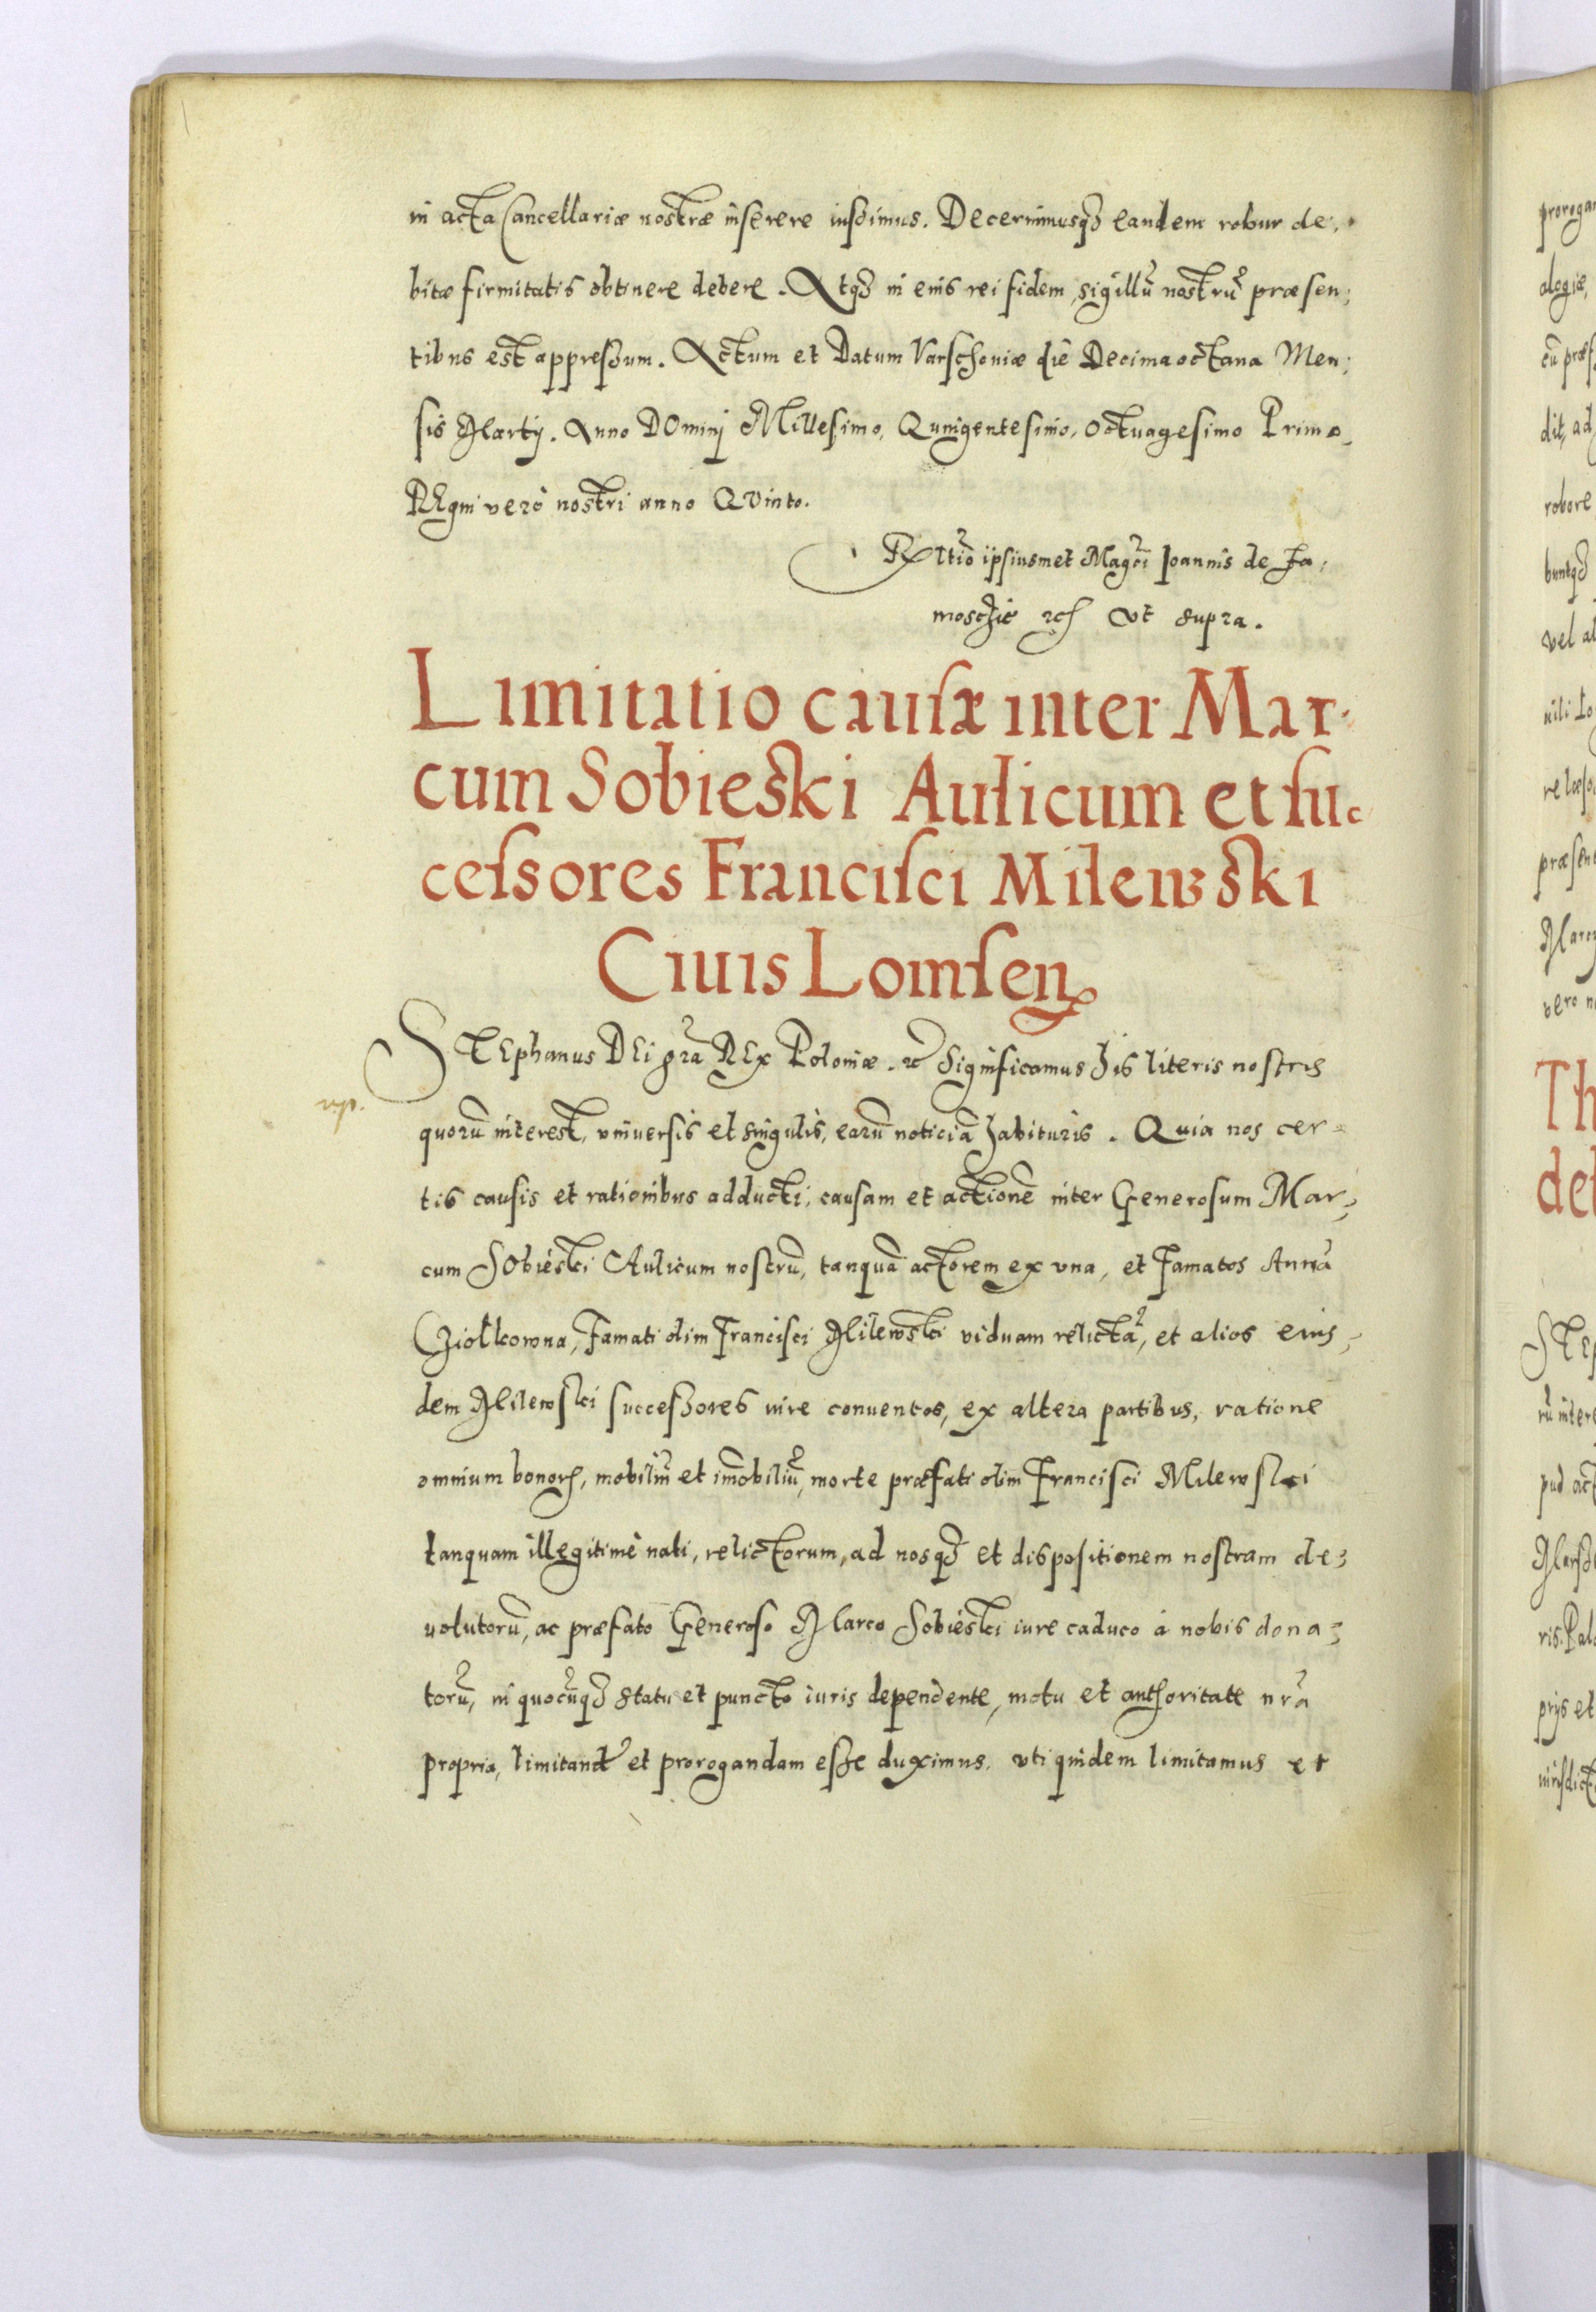 in acta Cancellariæ nostræ inserere iussimus. Decernimusq₃ eandem robur de,
bitæ firmitatis obtinere debere. Atq₃ in eius rei fidem sigillũ nostrũ præsen;
tibus est appressum. Actum et Datum Varschouiæ die Decima octaua Men;
sis Martij. Anno DOmini Millesimo, Quingentesimo, octuagesimo Primo,
REgni verò nostri anno QVinto.
Rltio ipsiusmet Magci Ioannis de Za,
moschie etc Vt supra.
Limitatio cauſæ inter Mar
cum Sobieski Aulicum et ſuc
ceſsores Franciſci Milewski
Ciuis Lomſen
STEphanus DEi gra REx Poloniæ. etc Significamus his literis nostris
quorũ interest, vniuersis et singulis, earũ noticiã habituris. Quia nos cer
tis causis et rationibus adducti, causam et actionẽ inter Generosum Mar,
cum SObieski Aulicum nostrũ, tanquã actorem ex vna, et Famatos Annã
Cziolkowna, Famati olim Francisci Milewski viduam relictã, et alios eius,
dem Milewski successores iure conuentos, ex altera partibus, ratione
omnium bonorum, mobiliũ et imobiliũ, morte præfati olim Francisci Milewski
tanquam illegitimè nati, relictorum, ad nosq₃ et dispositionem nostram de;
uolutorũ, ac præfato Generoso Marco Sobieski iure caduco à nobis dona;
torũ, in quocũq₃ statu et puncto iuris dependente, motu et authoritate nrã
propria, limitand et prorogandam esse duximus. vti quidem limitamus et